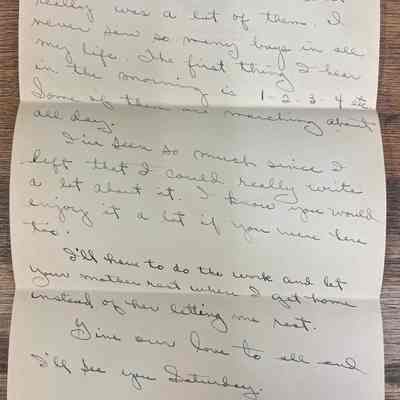 really was a lot of them. I
never saw so many boys in all
my life. The first thing I hear
in the morning is 1-2-3-4 etc.
Some of them are marching about
all day.
I've seen so much since I
left that I could really write
a lot about it. I know you would
enjoy it a lot if you were here
too.
I'll have to do the work and let
your mother rest when I get home
instead of her letting me rest.
Give our love to all and
I'll see you Saturday.